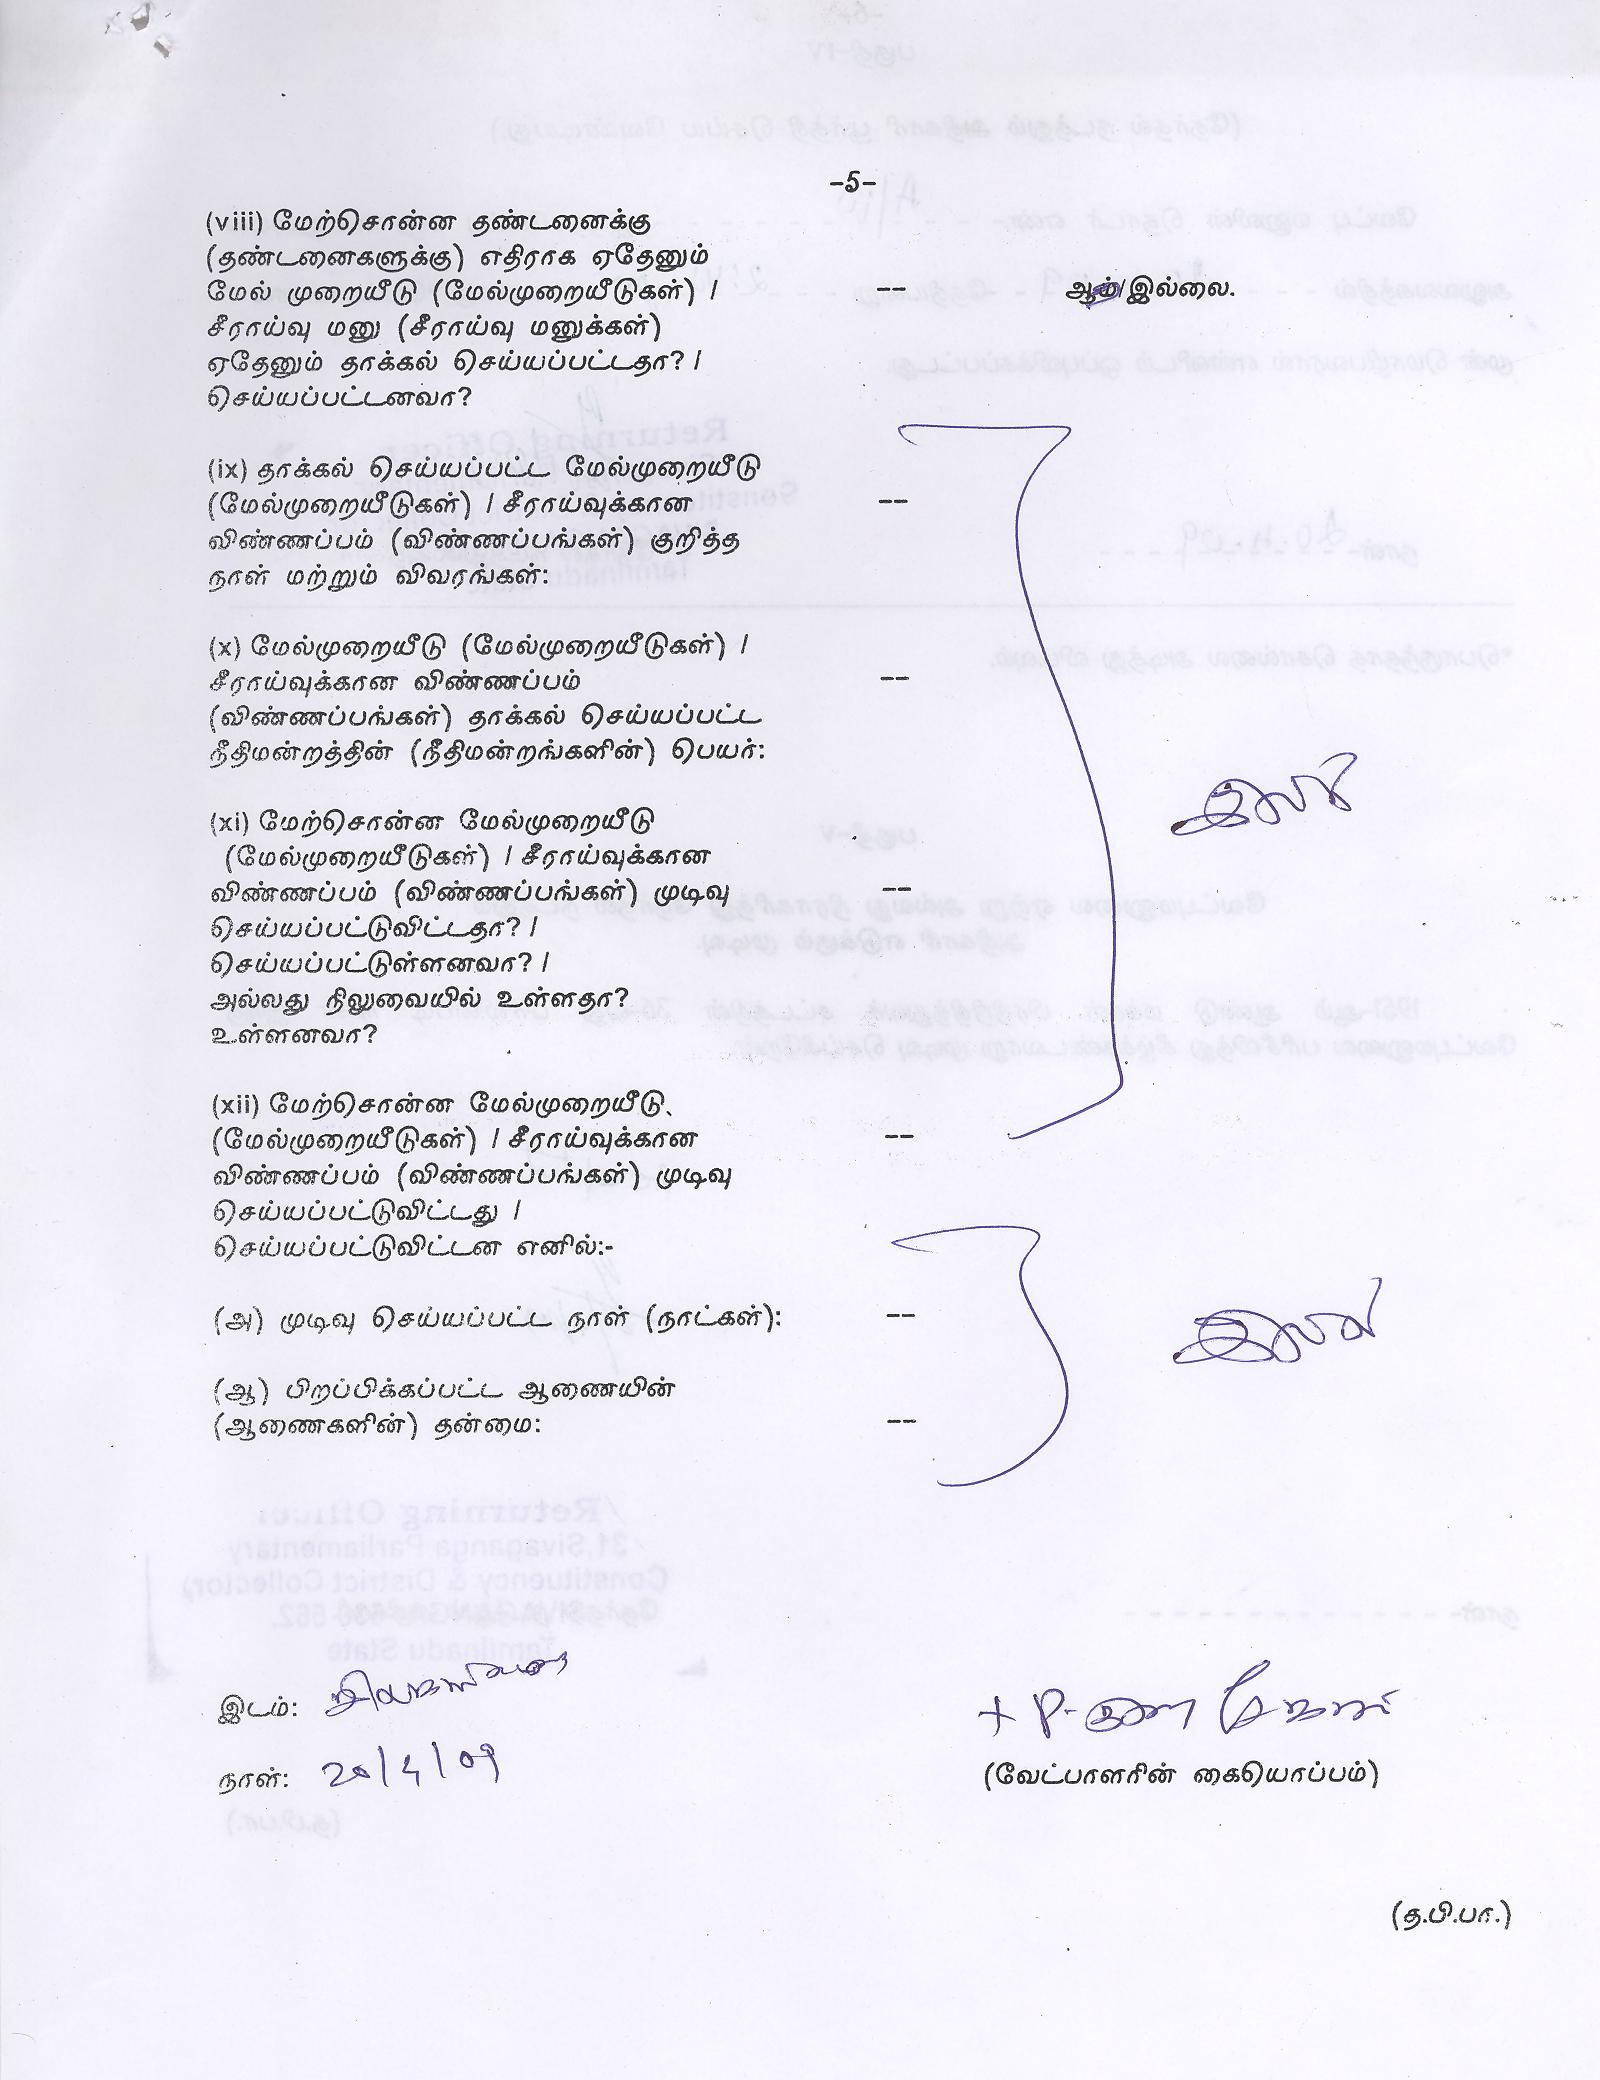 -5-
(viii) மேற்சொன்ன தண்டனைக்கு
(தண்டனைகளுக்கு) எதிராக ஏதேனும்
மேல் முறையீடு (மேல்முறையீடுகள்) / -- ஆம்/இல்லை.
சீராய்வு மனு (சீராய்வு மனுக்கள்)
ஏதேனும் தாக்கல் செய்யப்பட்டதா? /
செய்யப்பட்டனவா?
(ix) தாக்கல் செய்யப்பட்ட மேல்முறையீடு
(மேல்முறையீடுகள்) / சீராய்வுக்கான --
விண்ணப்பம் (விண்ணப்பங்கள்) குறித்த
நாள் மற்றும் விவரங்கள்:
(x) மேல்முறையீடு (மேல்முறையீடுகள்) /
சீராய்வுக்கான விண்ணப்பம் --
(விண்ணப்பங்கள்) தாக்கல் செய்யப்பட்ட
நீதிமன்றத்தின் (நீதிமன்றங்களின்) பெயர்:
இலை
(xi) மேற்சொன்ன மேல்முறையீடு
(மேல்முறையீடுகள்) / சீராய்வுக்கான
விண்ணப்பம் (விண்ணப்பங்கள்) முடிவு --
செய்யப்பட்டுவிட்டதா? /
செய்யப்பட்டுள்ளனவா? /
அல்லது நிலுவையில் உள்ளதா?
உள்ளனவா?
(xii) மேற்சொன்ன மேல்முறையீடு
(மேல்முறையீடுகள்) / சீராய்வுக்கான --
விண்ணப்பம் (விண்ணப்பங்கள்) முடிவு
செய்யப்பட்டுவிட்டது /
செய்யப்பட்டுவிட்டன எனில்:-
(அ) முடிவு செய்யப்பட்ட நாள் (நாட்கள்): --
(ஆ) பிறப்பிக்கப்பட்ட ஆணையின்
(ஆணைகளின்) தன்மை: --
இடம்: சிவகங்கை
நாள்: 20/4/09
(வேட்பாளரின் கையொப்பம்)
(த.பி.பா.)